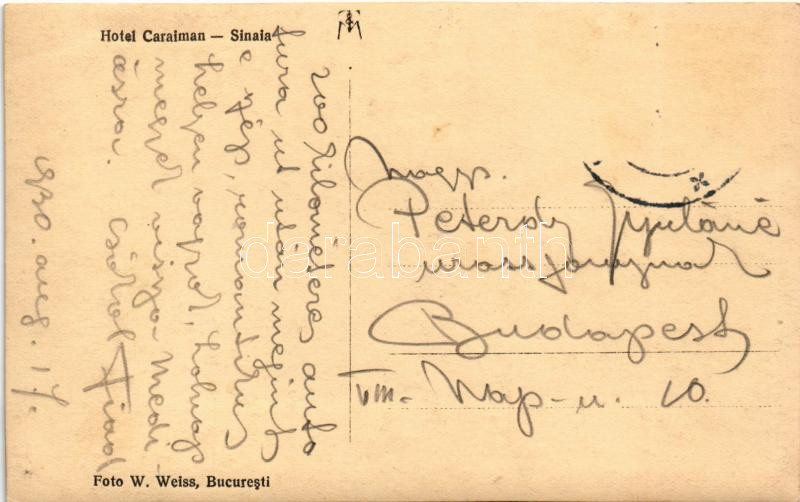 Hotel Caraiman — Sinaia
200 kilométeres auto
tura ut után megint
e szép, romantikus
helyen vagyok, holnap
megyek vissza Medi-
ásra. Csókol Fiad
1930. aug. 17.
Nagys.
Péterdy Gyuláné
urasszonynak
Budapest
VIII. Nap-u. 10.
Foto W. Weiss, București
darabanth